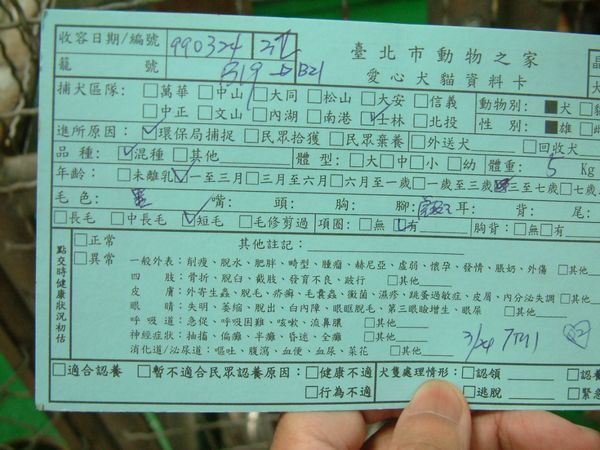 收容日期/編號 990324
臺北市動物之家
籠號 B19→B21
愛心犬貓資料卡
捕犬區隊: □萬華 □中山 □大同 □松山 □大安 □信義 動物別: ■犬
□中正 □文山 □內湖 □南港 ☑士林 □北投 性別: ■雄
進所原因: ☑環保局捕捉 □民眾拾獲 □民眾棄養 □外送犬 □回收犬
品種: ☑混種 □其他 體型: □大□中□小□幼 體重: 5 Kg
年齡: □未離乳 ☑一至三月□三月至六月□六月至一歲□一至三歲 三至七歲□七
毛色: 黑 嘴: 頭: 胸: 腳: 耳: 背: 尾:
□長毛 □中長毛 ☑短毛 □毛修剪過 項圈: □無☑有 胸背: □無□有
點交時健康狀況初估
□正常 其他註記:
□異常 一般外表: 削瘦、脫水、肥胖、畸型、腫瘤、赫尼亞、虛弱、懷孕、發情、脹奶、外傷 □其他
四肢: 骨折、脫臼、截肢、發育不良、跛行 □其他
皮膚: 外寄生蟲、脫毛、疥癬、毛囊蟲、黴菌、濕疹、跳蚤過敏症、皮屑、內分泌失調 □其他
眼睛: 失明、萎縮、脫出、白內障、眼眶脫毛、第三眼瞼增生、眼屎 □其他
呼吸道: 急促、呼吸困難、咳嗽、流鼻膿 □其他
神經症狀: 抽搐、偏癱、半癱、昏迷、全癱 □其他
消化道/泌尿道: 嘔吐、腹瀉、血便、血尿、菜花 □其他
3/24
□適合認養 □暫不適合民眾認養原因: □健康不適 犬隻處理情形: □認領 □認養
□行為不適 □逃脫 □緊急